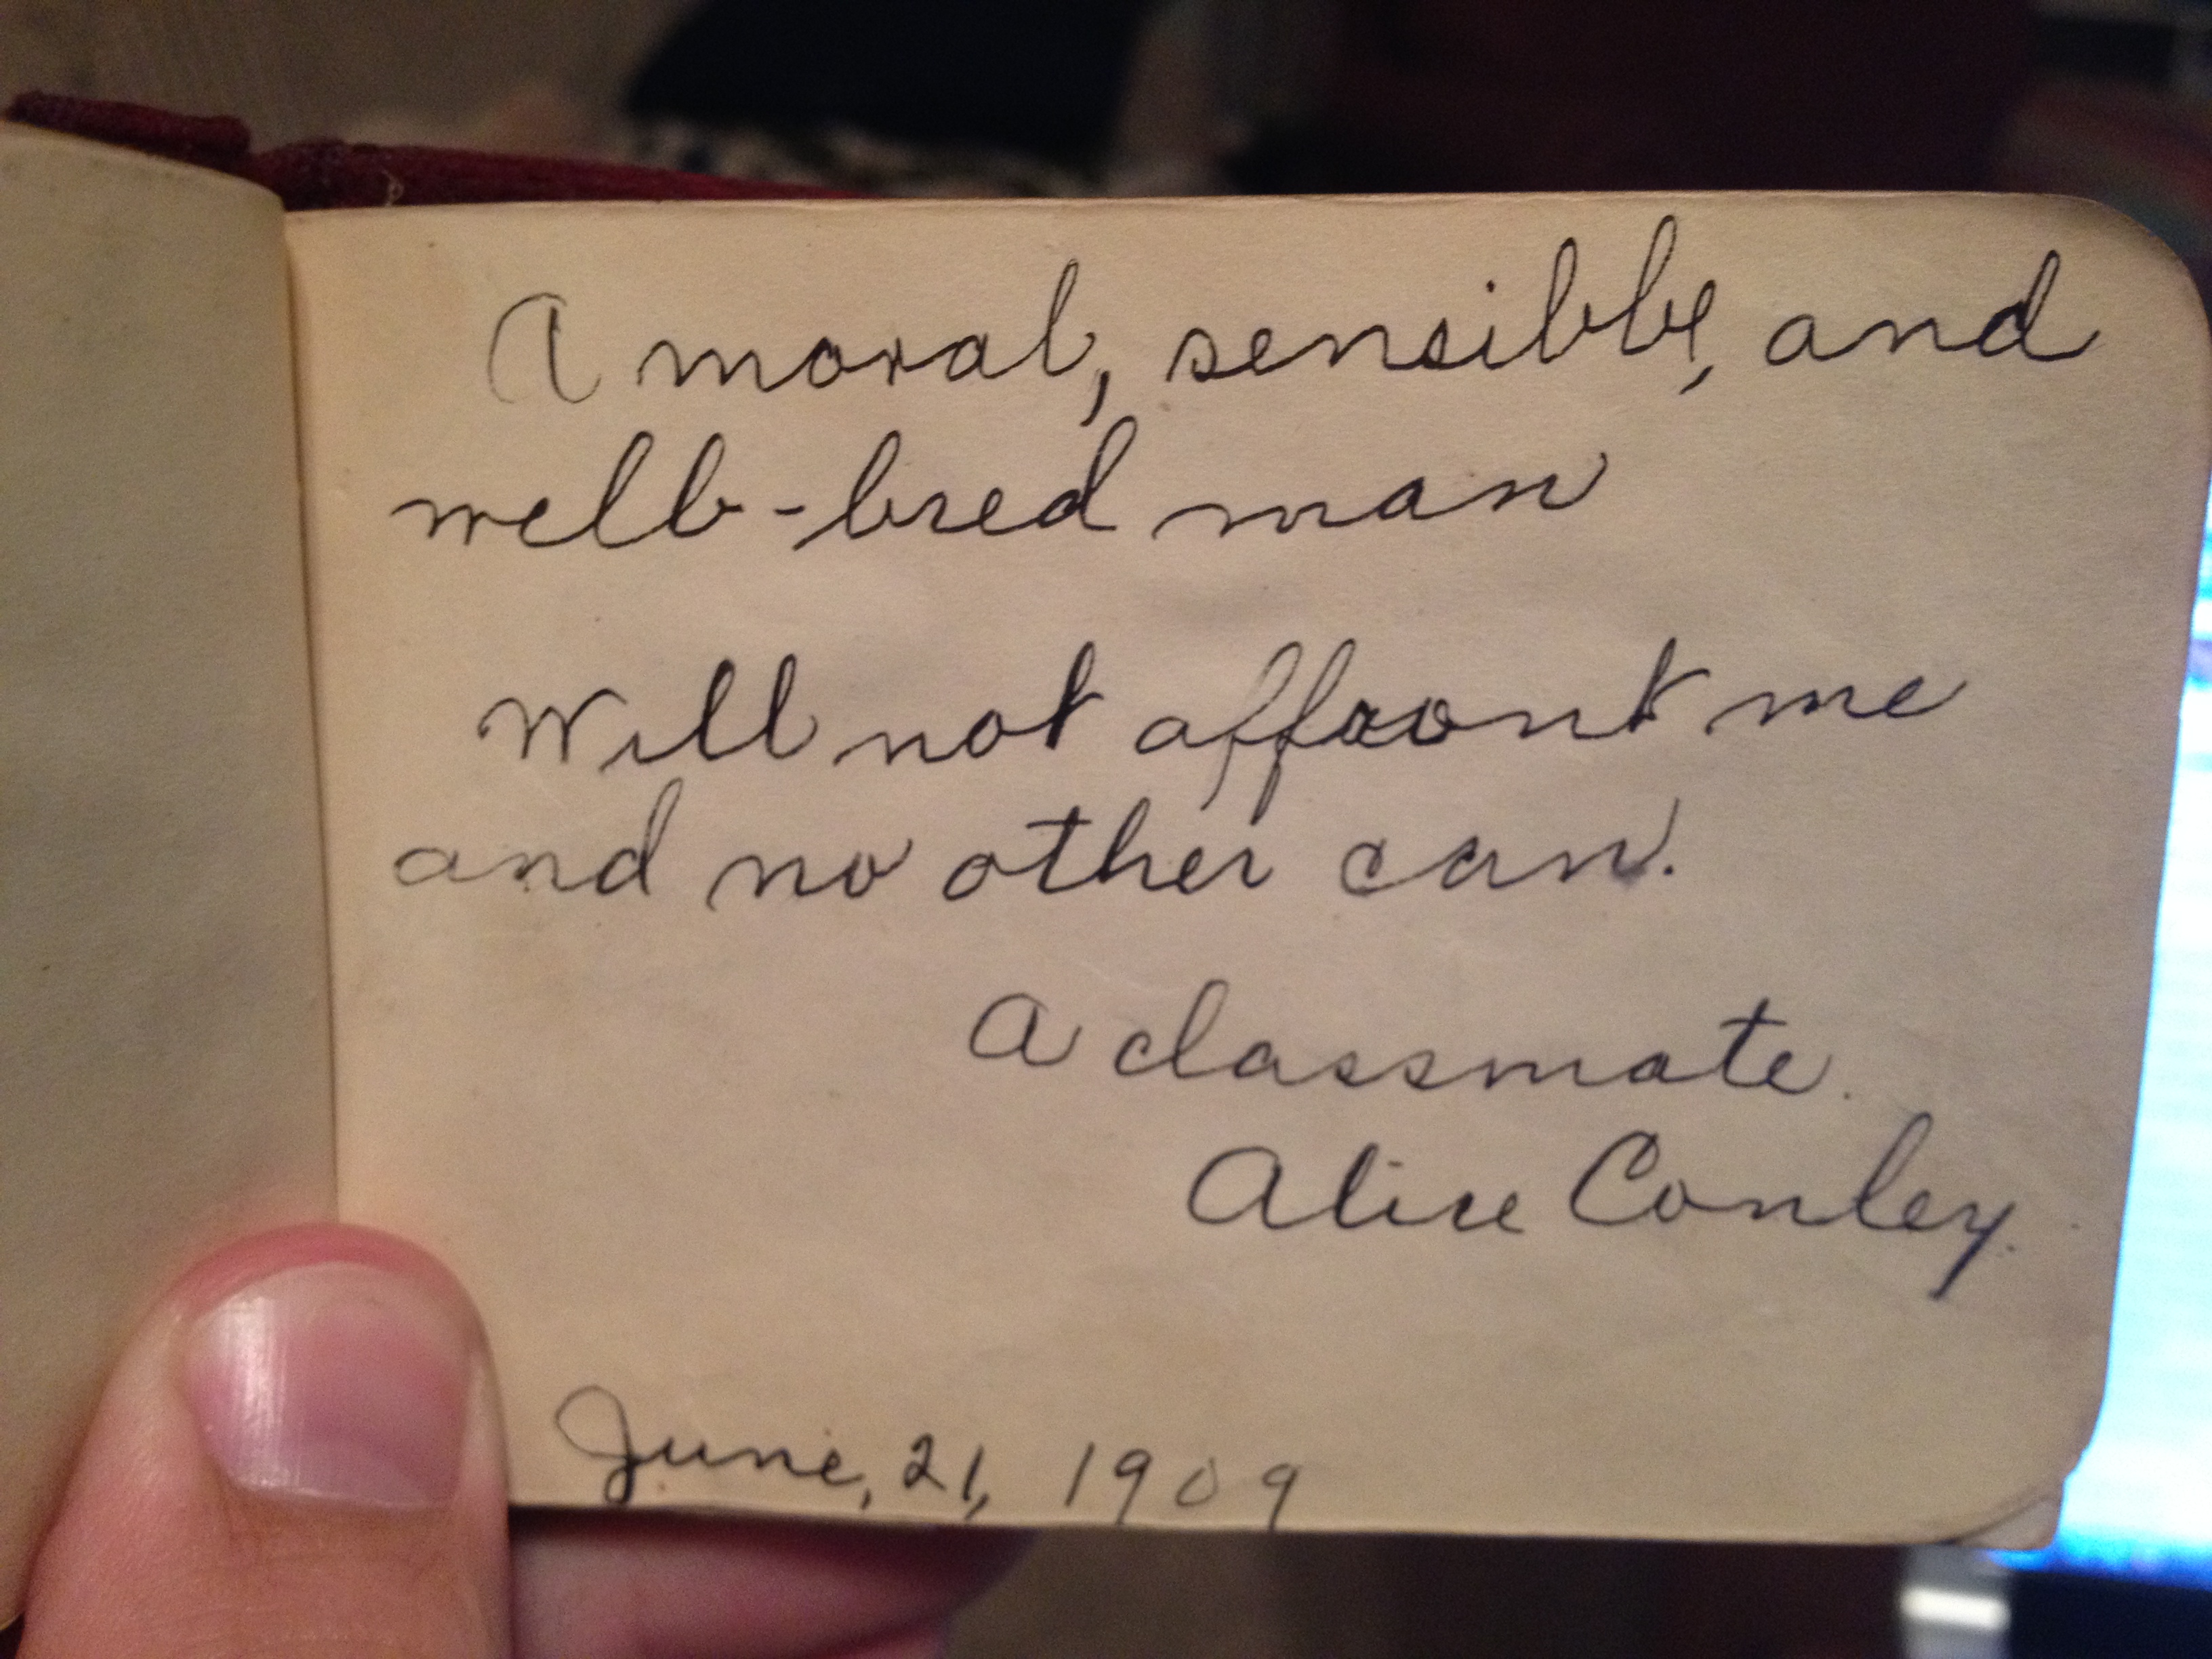 A moral, sensible, and
well-bred man
Will not affront me
and no other can.
A classmate.
Alice Conley.
June, 21, 1909